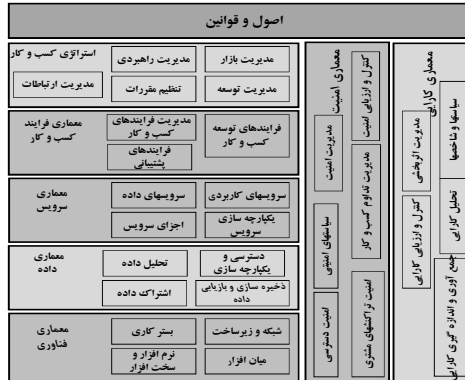 اصول و قوانین
استراتژی کسب و کار
مدیریت راهبردی
مدیریت بازار
مدیریت ارتباطات
تنظیم مقررات
مدیریت توسعه
معماری فرایند
کسب و کار
مدیریت فرایندهای
کسب و کار
فرایندهای توسعه
کسب و کار
فرایندهای
پشتیبانی
معماری
سرویس
سرویسهای داده
سرویسهای کاربردی
اجزای سرویس
یکپارچه سازی
سرویس
معماری
داده
تحلیل داده
دسترسی و
یکپارچه سازی
اشتراک داده
ذخیره سازی و بازیابی
داده
معماری
فناوری
بستر کاری
شبکه و زیرساخت
نرم افزار و
سخت افزار
میان افزار
معماری امنیت
کنترل و ارزیابی امنیت
مدیریت امنیت
مدیریت تداوم کسب و کار
سیاستهای امنیتی
امنیت تراکنشهای مشتری
امنیت دسترسی
معماری کارایی
سیاستها و شاخصها
مدیریت اثربخشی
تحلیل کارایی
کنترل و ارزیابی کارایی
جمع آوری و اندازه گیری کارایی